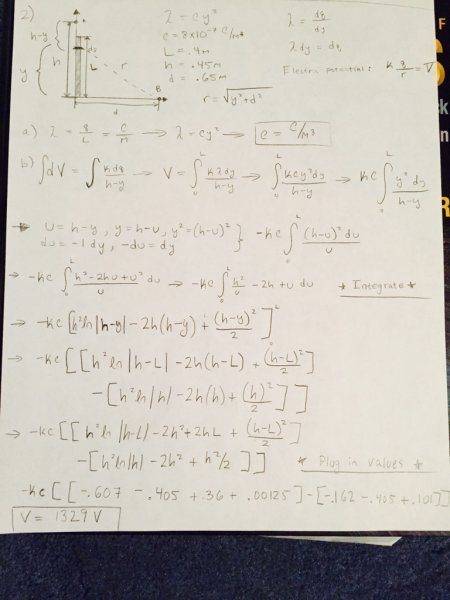 2)
A
h-y
y
h
L
r
B
d
λ = cy²
c = 8×10⁻⁷ C/m³
L = .4m
h = .45m
d = .65m
r = √y²+d²
λ = dq/dy
λ dy = dq
Electro potential: K q/r = V
a) λ = q/L = C/m → λ = cy² → c = C/m³
b) ∫dV = ∫ Kdq/h-y → V = ∫₀ᴸ Kλdy/h-y → ∫₀ᴸ Kcy²dy/h-y → Kc ∫₀ᴸ y² dy/h-y
→ U = h-y, y = h-U, y² = (h-U)²
dU = -1 dy, -dU = dy } -Kc ∫₀ᴸ (h-U)² dU/U
→ -Kc ∫₀ᴸ h²-2hU+U²/U dU → -Kc ∫₀ᴸ h²/U -2h + U dU * Integrate *
→ -Kc [h² ln|h-y| - 2h(h-y) + (h-y)²/2]₀ᴸ
→ -Kc [[h² ln|h-L| - 2h(h-L) + (h-L)²/2]
-[h² ln|h| - 2h(h) + (h)²/2]]
→ -Kc [[h² ln|h-L| - 2h² + 2hL + (h-L)²/2]
-[h² ln|h| - 2h² + h²/2]] * Plug in values *
-Kc [[-.607 - .405 + .36 + .00125] - [-.162 - .405 + .101]]
V = 1329 V
F